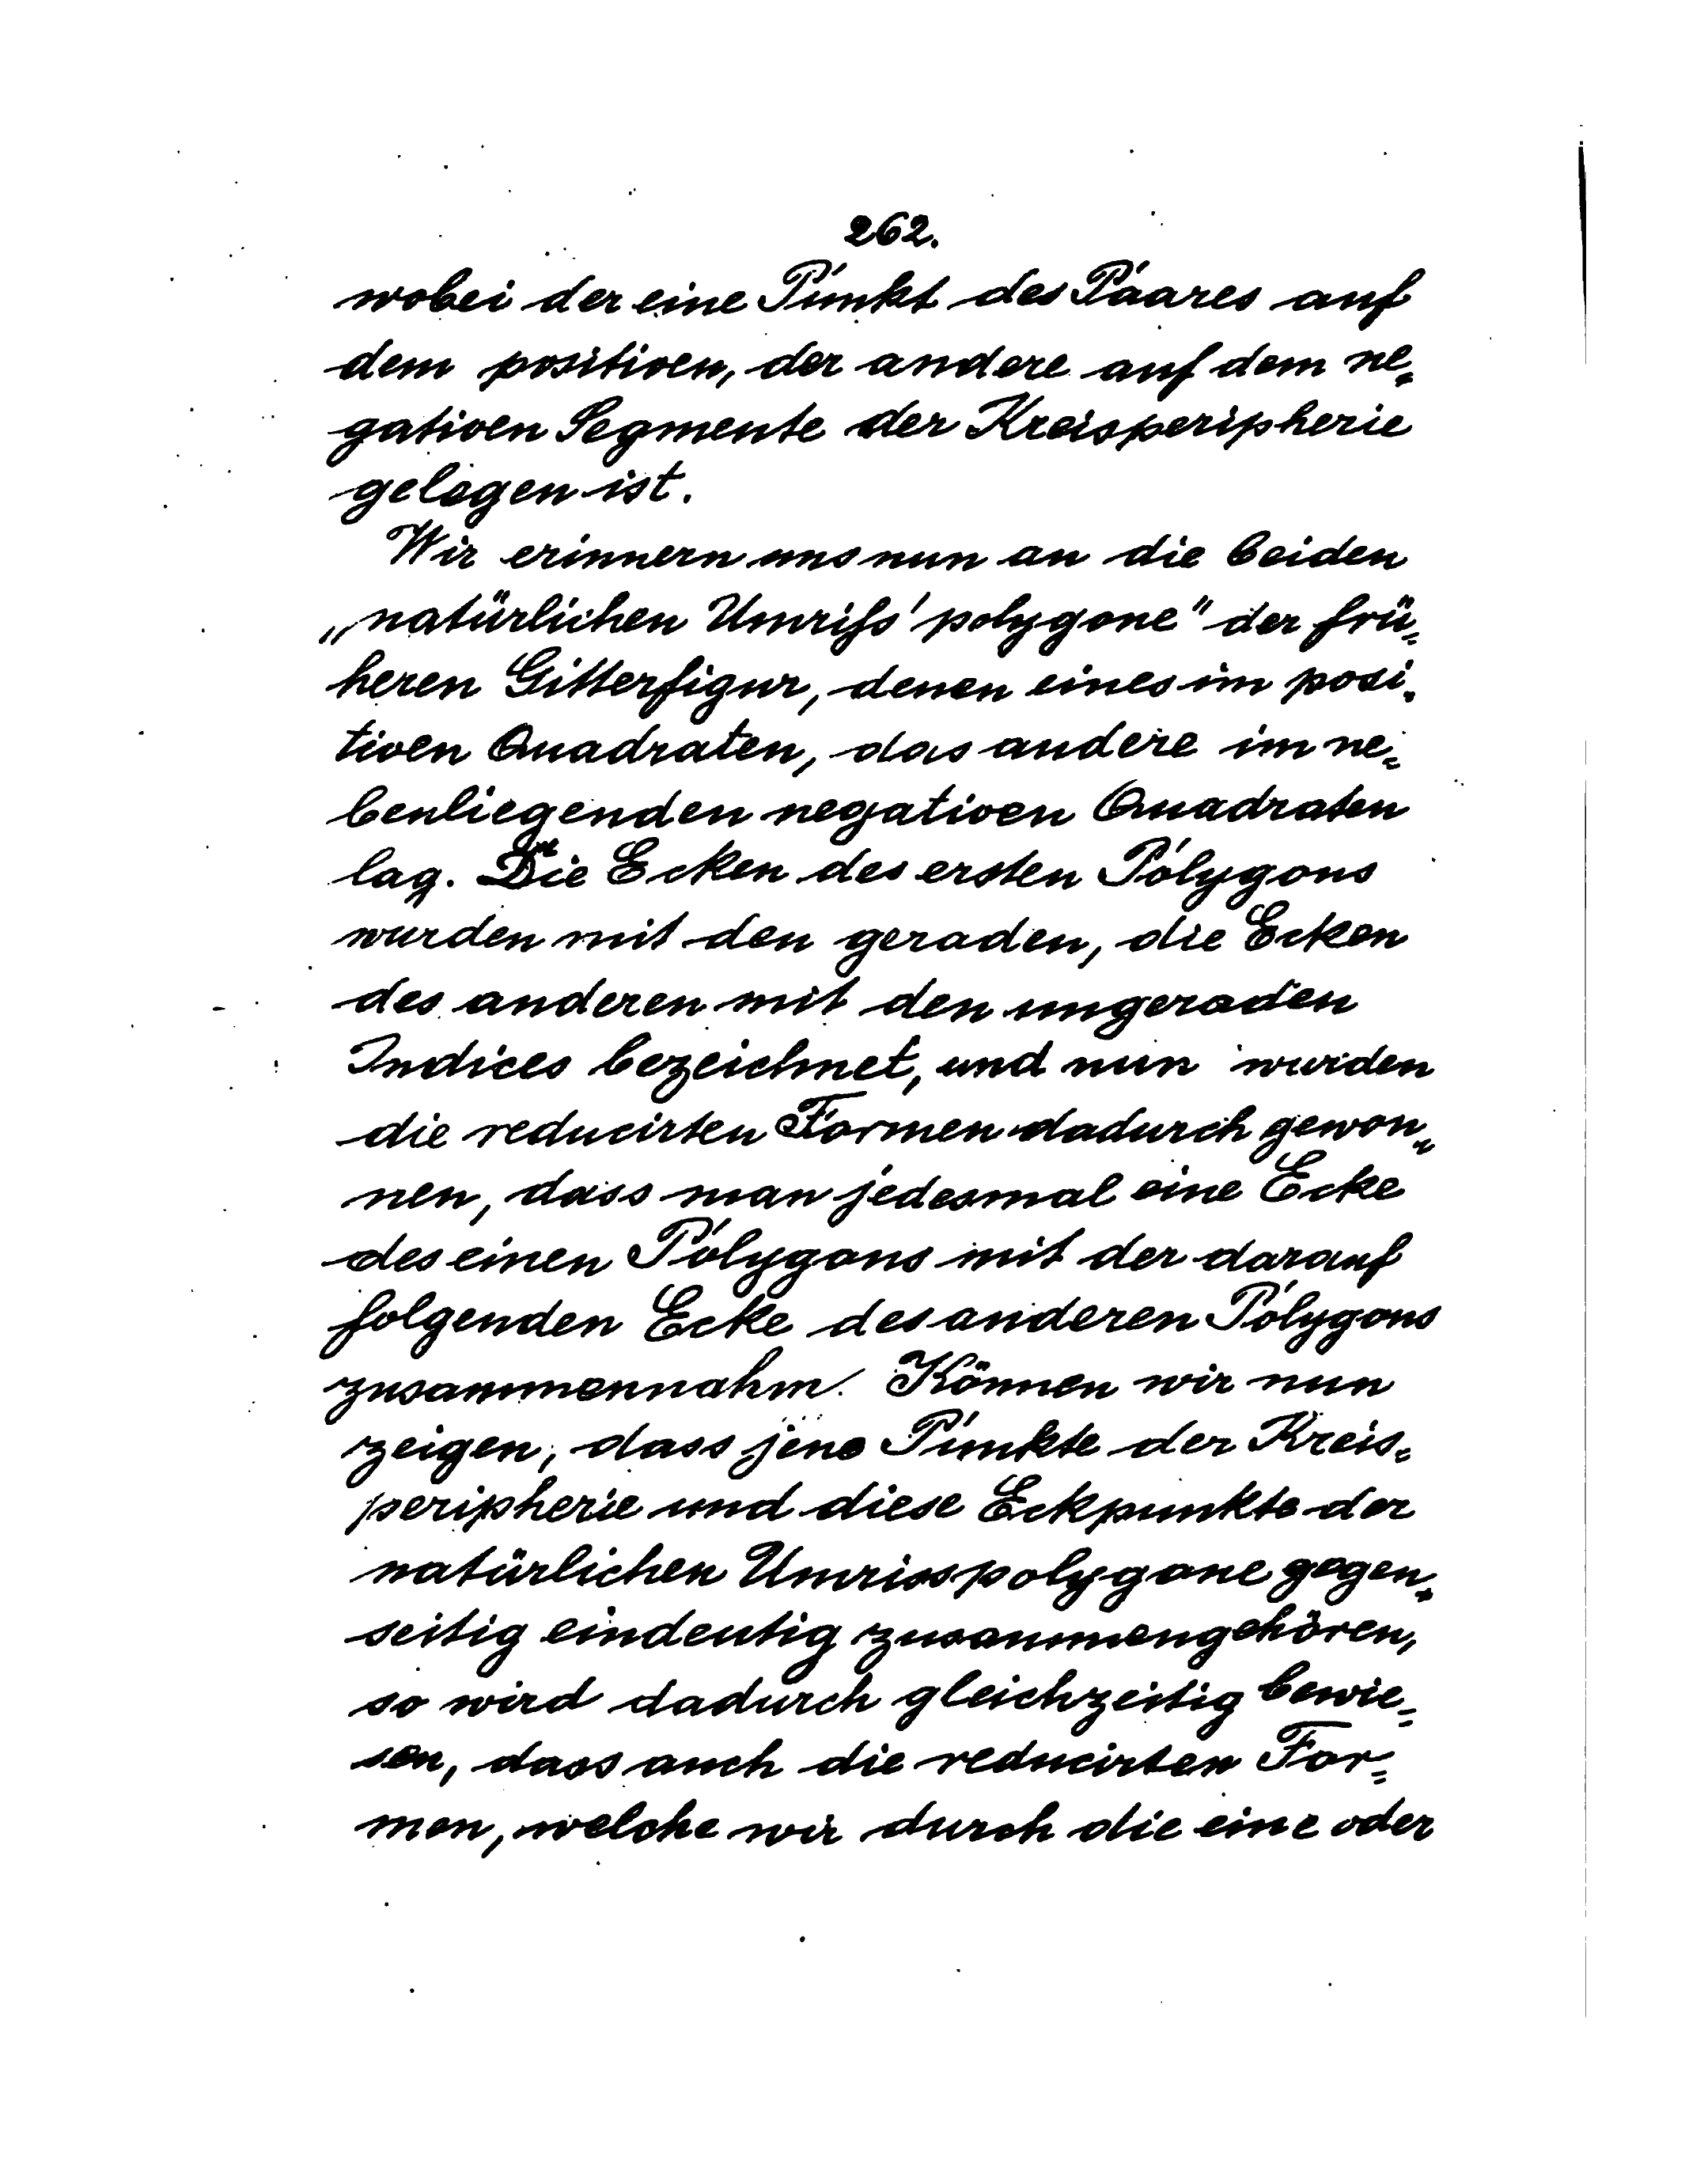 262.
wobei der eine Punkt des Paares auf
dem positiven, der andere auf dem ne=
gativen Segmente der Kreisperipherie
gelegen ist.
Wir erinnern uns nun an die beiden
„natürlichen Umriss'polygone" der frü=
heren Gitterfigur, denen eines im posi=
tiven Quadraten, das andere im ne=
benliegenden negativen Quadraten
lag. Die Ecken des ersten Polygons
wurden mit den geraden, die Ecken
des anderen mit den ungeraden
Indices bezeichnet, und nun wurden
die reducirten Formen dadurch gewon=
nen, dass man jedesmal eine Ecke
des einen Polygons mit der darauf
folgenden Ecke des anderen Polygons
zusammennahm. Können wir nun
zeigen, dass jene Punkte der Kreis=
peripherie und diese Eckpunkte der
natürlichen Umrisspolygone gegen=
seitig eindeutig zusammengehören,
so wird dadurch gleichzeitig bewie=
sen, dass auch die reducirten For=
men, welche wir durch die eine oder